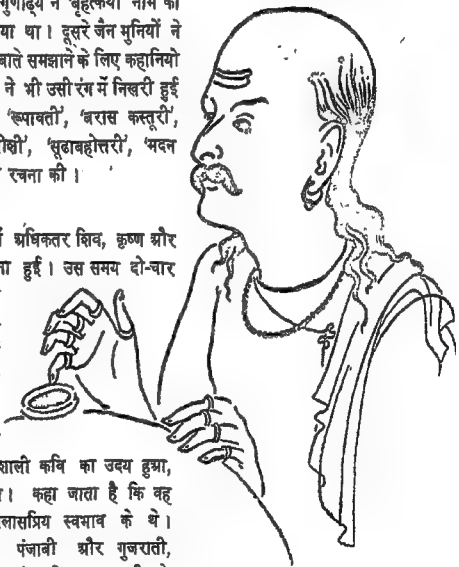 गुणाढ्य ने 'बृहत्कथा' नाम की
या था। दूसरे जैन मुनियों ने
बाते समझाने के लिए कहानियो
ने भी उसी रंग में निखरी हुई
'रूपावती', 'बरास कस्तूरी',
'सूढाबहोत्तरी', 'मदन
रचना की।
अधिकतर शिव, कृष्ण और
ना हुई। उस समय दो-चार
शाली कवि का उदय हुआ,
कहा जाता है कि वह
लासप्रिय स्वभाव के थे।
पंजाबी और गुजराती,